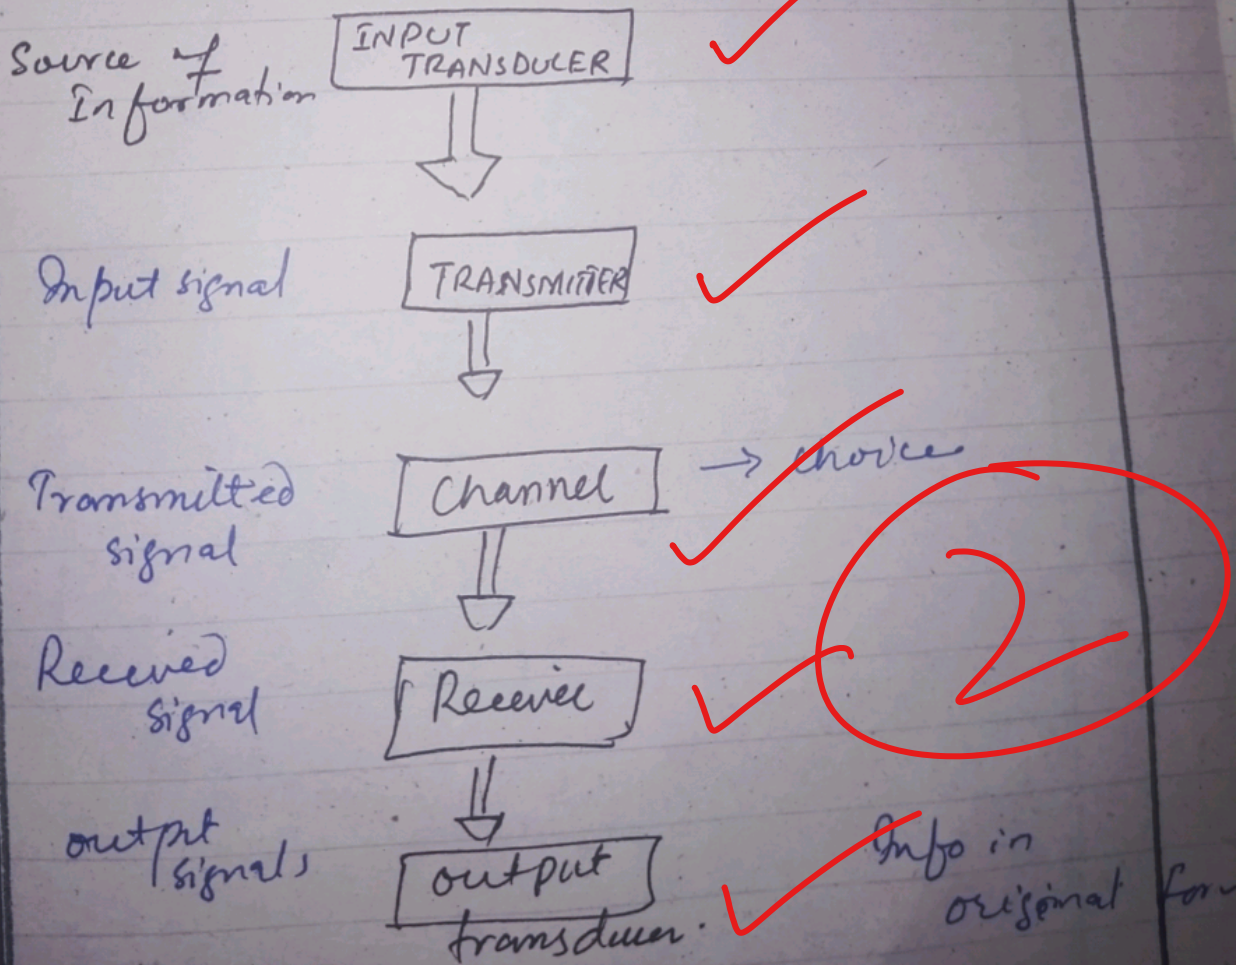 Source of
Information
INPUT
TRANSDUCER
Input signal
TRANSMITTER
Transmitted
signal
Channel
→ choice
Received
signal
Receiver
2
output
signals
output
transducer.
Info in
original for